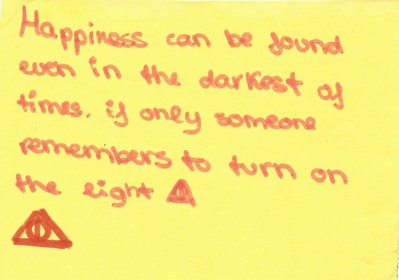 Happiness can be found
even in the darkest of
times, if only someone
remembers to turn on
the light